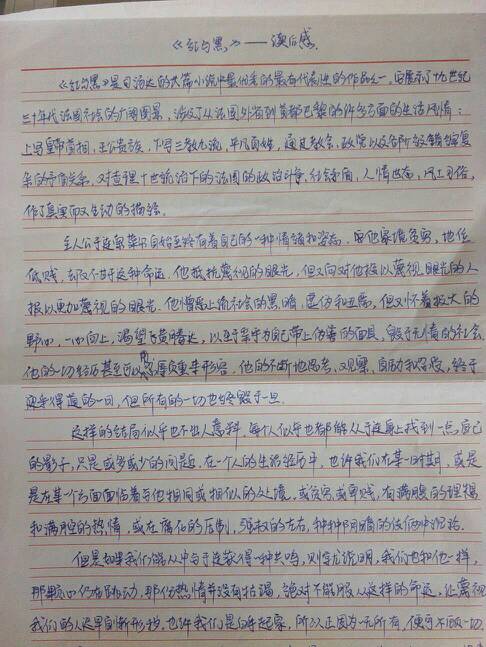 《红与黑》——读后感
《红与黑》是司汤达的长篇小说中最优秀的最有代表性的作品之一，它展示了十九世纪
三十年代法国社会的广阔图景，涉及了从法国外省到首都巴黎的许多方面的生活风情：
上写皇帝首相，王公贵族，下写三教九流，平凡百姓，通过教会，政党以及各阶级错综复
杂的矛盾关系，对查理十世统治下的法国的政治斗争，社会 面，人情世态，风土习俗，
作了真实而又生动的描绘。
主人公于连索莱尔自始至终有着自己的一种情绪和姿态，他家境贫穷，地位
低贱，却又不甘于这种命运。他抵抗蔑视的眼光，但又向对他投以蔑视眼光的人
报以更加蔑视的眼光。他憎恶上流社会的黑暗，虚伪和丑恶，但又怀着极大的
野心，一心向上，渴望飞黄腾达，以至于 为自己带上伪善的面具，毁于无情的社会
他的一切经历甚至可以用忍辱负重来形容，他的不断地思考，观察，自励和忍受，终于
迎来得逞的一日，但所有的一切也终毁于一旦。
这样的结局似乎也不出人意料，每个人似乎也都能从于连身上找到一点自己
的影子，只是或多或少的问题。在一个人的生活经历中，也许我们在某一时期，或是
是在某一方面面临着与他相同或相似的处境，或贫穷或卑贱，有满腹的理想
和满腔的热情，或在腐化的压制，强权的左右，种种阴暗的伎俩中沉沦。
但是如果我们能从中与于连获得一种共鸣，则写尤说明，我们也和他一样，
那颗心仍在跳动，那份热情并没有枯竭，绝对不能服从这样的命运，让蔑视
我们的人迟早刮目 ，也许我们是白手起家，所以正因为一无所有，便可不顾一切